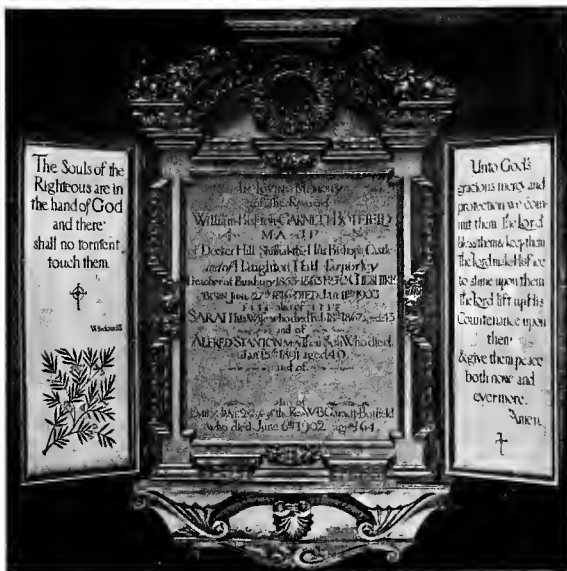 The Souls of the
Righteous are in
the hand of God
and there
shall no torment
touch them.
Wisdom III
In Loving Memory
of the Reverend
William Bishton GARNETT BOTFIELD
M.A. J.P.
of Decker Hill Shifnal the Hut Bishop's Castle
and of Haughton Hall Tarporley
Preacher of Bunbury 1855-1863 CHESHIRE
BORN June 27th 1816 DIED Jan 11th 1903
also of
SARAH His Wife who died Feb 1867 aged 43
and of
ALFRED STANTON M.A. Their Son Who died
Jan 15th 1891 aged 40
and of
also of
wife of the Rev W.B. Garnett-Botfield
who died June 6th 1902 aged 64
Unto God's
gracious mercy and
protection we com-
mit them. The Lord
bless them & keep them
The Lord make His face
to shine upon them
The Lord lift up His
Countenance upon
them
& give them peace
both now and
evermore.
Amen